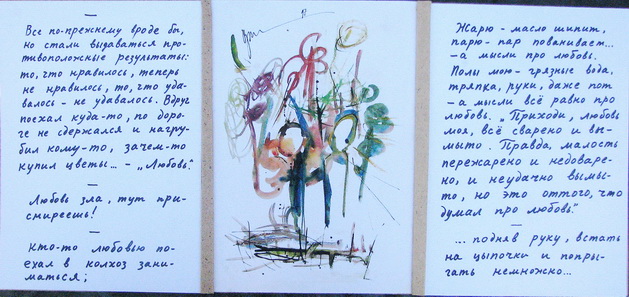 —
Все по-прежнему вроде бы,
но стали выдаваться про-
тивоположные результаты:
то, что нравилось, теперь
не нравилось, то, что уда-
валось - не удавалось. Вдруг
поехал куда-то, по доро-
ге не сдержался и нагру-
бил кому-то, зачем-то
купил цветы... - „Любовь."
—
Любовь зла, тут при-
смиреешь!
—
Кто-то любовью по-
ехал в колхоз зани-
маться;
Жарю - масло шипит,
парю - пар пованивает...
- а мысли про любовь.
Полы мою - грязные вода,
тряпка, руки, даже пот
- а мысли всё равно про
любовь. „Приходи, любовь
моя, всё сварено и вы-
мыто. Правда, малость
пережарено и недоваре-
но, и неудачно вымы-
то, но это оттого, что
думал про любовь."
—
... подняв руку, встать
на цыпочки и попры-
гать немножко...